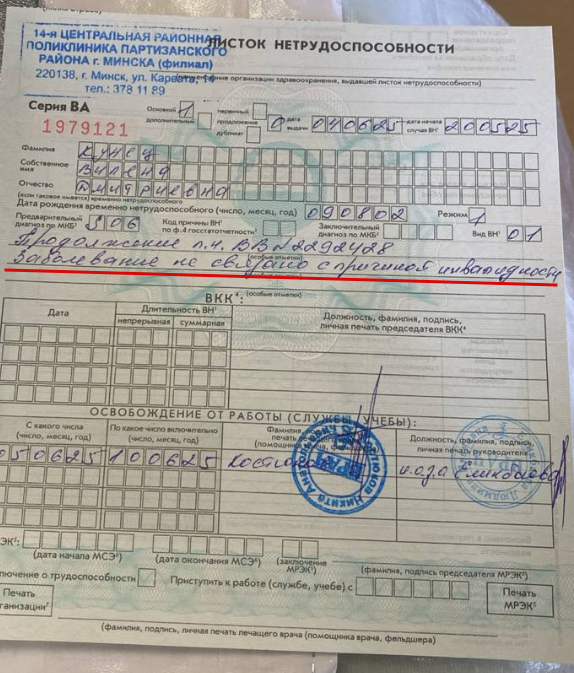 14-я ЦЕНТРАЛЬНАЯ РАЙОННАЯ
ПОЛИКЛИНИКА ПАРТИЗАНСКОГО
РАЙОНА г. МИНСКА (филиал)
220138, г. Минск, ул. Карвата,
тел.: 378 11 89
ЛИСТОК НЕТРУДОСПОСОБНОСТИ
организации здравоохранения, выдавшей листок нетрудоспособности)
Серия ВА
1979121
Основной 1
дополнительный
первичный
продолжение
дубликат
дата выдачи 040625 дата начала случая ВН 200525
Фамилия Кунец
Собственное имя Вилена
Отчество Дмитриевна
(если таковое имеется) временно нетрудоспособного
Дата рождения временно нетрудоспособного (число, месяц, год) 090802 Режим 1
Предварительный диагноз по МКБ J06 Код причины ВН по ф.4 госстатотчетности Заключительный диагноз по МКБ Вид ВН 01
Продолжение л.н. ВВ № 2292428
(особые отметки)
Заболевание не связано с причиной инвалидности
(особые отметки)
ВКК
Дата
Длительность ВН
непрерывная суммарная
Должность, фамилия, подпись, личная печать председателя ВКК
ОСВОБОЖДЕНИЕ ОТ РАБОТЫ (СЛУЖБЫ, УЧЕБЫ):
С какого числа (число, месяц, год)
По какое число включительно (число, месяц, год)
Должность, фамилия, подпись, личная печать руководителя
050625 100625
(дата начала МСЭ) (дата окончания МСЭ) (заключение МРЭК) (фамилия, подпись председателя МРЭК)
о трудоспособности Приступить к работе (службе, учебе) с
Печать
Печать МРЭК
(фамилия, подпись, личная печать лечащего врача (помощника врача, фельдшера)